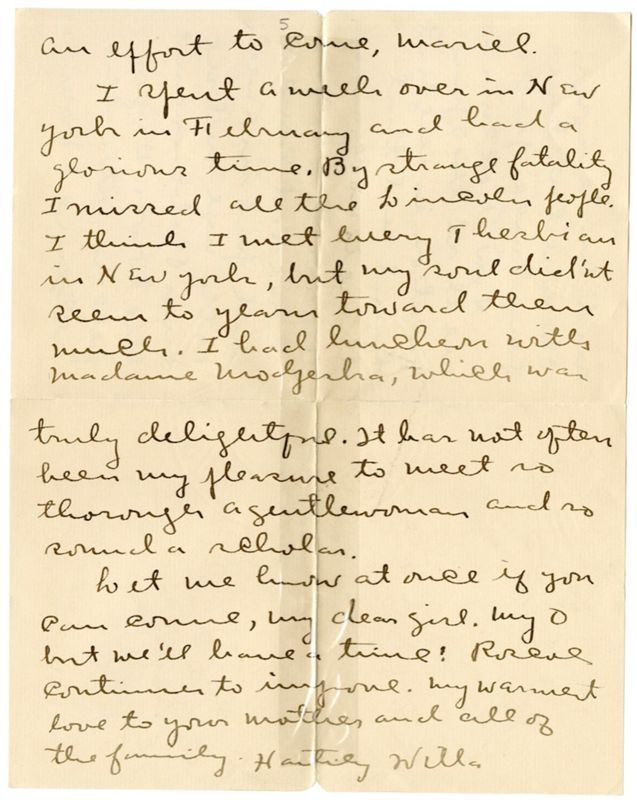 5
an effort to come, Mariel.
I spent a week over in New
York in February and had a
glorious time. By strange fatality
I missed all the Lincoln people.
I think I met every Thesbian
in New York, but my soul did'nt
seem to yearn toward them
much. I had luncheon with
Madame Modjeska, which was
truly delightful. It has not often
been my pleasure to meet so
thorough a gentlewoman and so
sound a scholar.
Let me know at once if you
can come, my dear girl. My O
but we'll have a time! Roscoe
continues to improve. My warmest
love to your mother and all of
the family. Hastily Willa